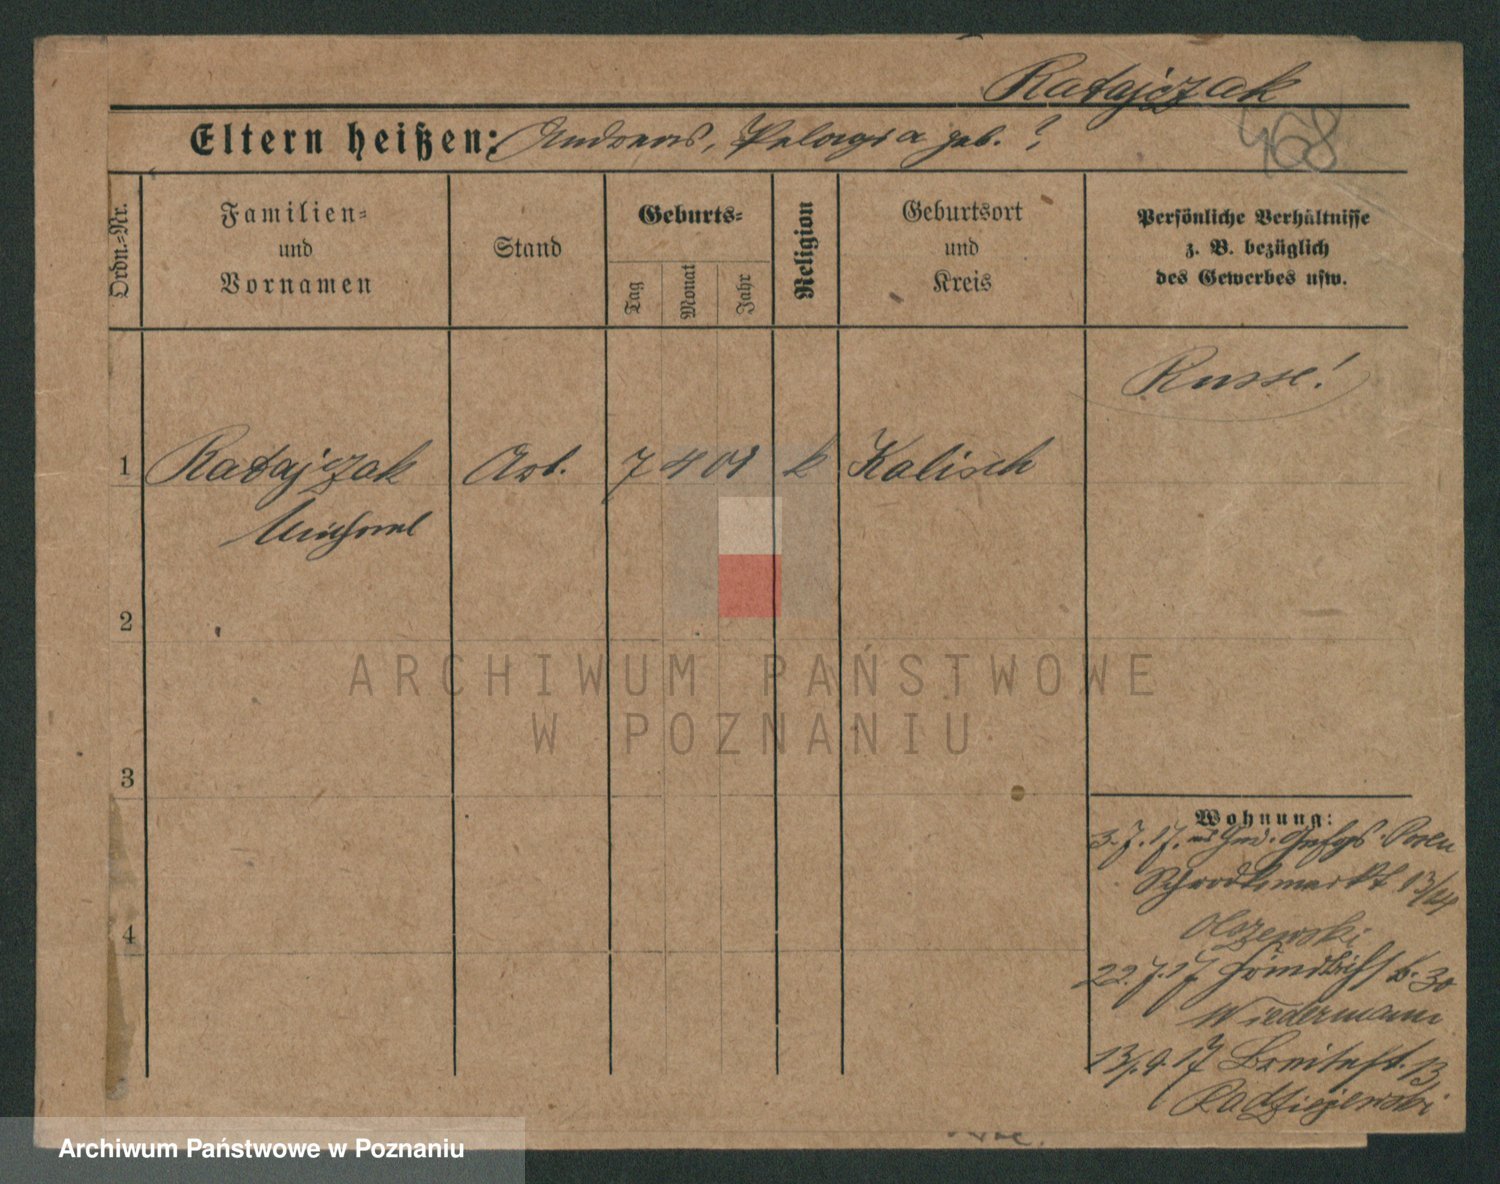 Ratajczak
Eltern heißen: Andreas, Pelagia geb. ?
468
Ordn.=Nr.
Familien=
und
Vornamen
Stand
Geburts=
Tag
Monat
Jahr
Religion
Geburtsort
und
Kreis
Persönliche Verhältnisse
z. B. bezüglich
des Gewerbes usw.
Russe!
1 Ratajczak Arb. 7 4 01 k Kalisch
Michael
2
ARCHIWUM PAŃSTWOWE
W POZNANIU
3
Wohnung:
3.7.17. Posen
Schrodkamarkt 13/14
4
Olszewski
22.7.17 30
Wiedermann
13/.9.17 Breitestr. 13
Radziejewski
Archiwum Państwowe w Poznaniu